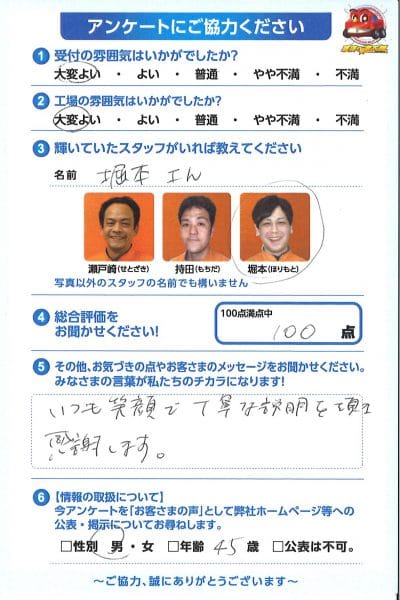 アンケートにご協力ください
1 受付の雰囲気はいかがでしたか?
大変よい ・ よい ・ 普通 ・ やや不満 ・ 不満
2 工場の雰囲気はいかがでしたか?
大変よい ・ よい ・ 普通 ・ やや不満 ・ 不満
3 輝いていたスタッフがいれば教えてください
名前 堀本さん
瀬戸崎(せとざき) 持田(もちだ) 堀本(ほりもと)
写真以外のスタッフの名前でも構いません
4 総合評価を
お聞かせください!
100点満点中
100 点
5 その他、お気づきの点やお客さまのメッセージをお聞かせください。
みなさまの言葉が私たちのチカラになります!
いつも笑顔で丁寧な説明を頂き
感謝します。
6 【情報の取扱について】
今アンケートを「お客さまの声」として弊社ホームページ等への
公表・掲示についてお尋ねします。
□性別 男・女 □年齢 45 歳 □公表は不可。
~ご協力、誠にありがとうございます~